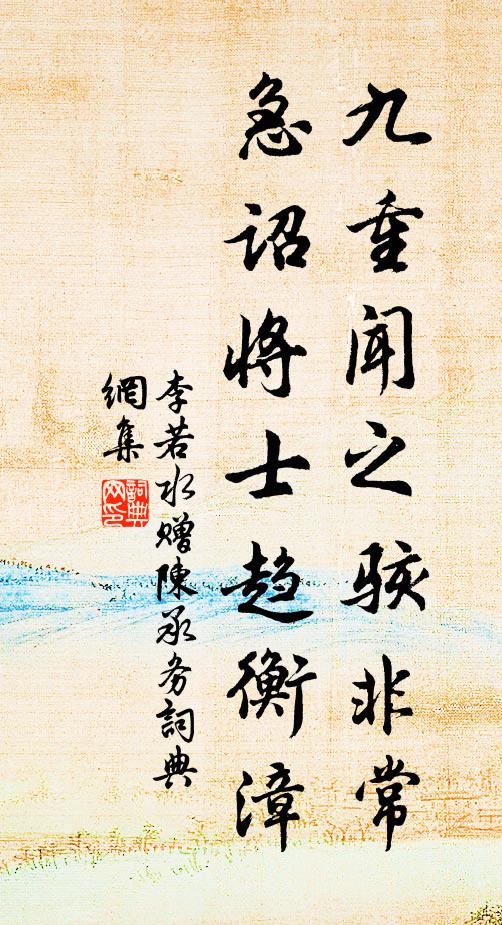 九重闻之骇非常
急诏将士趋衡漳
李若水赠陳承务詞典
網集
詞典网印